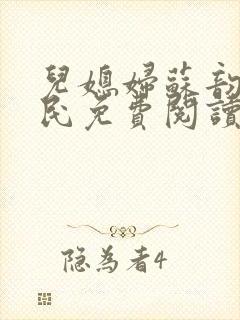 兒媳婦蘇韵
民免費閱讀
隐為者4